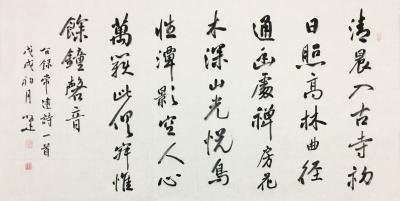 清晨入古寺初
日照高林曲径
通幽處禅房花
木深山光悦鳥
性潭影空人心
萬籁此俱寂惟
餘鐘磬音
常建詩一首
戊戌初月